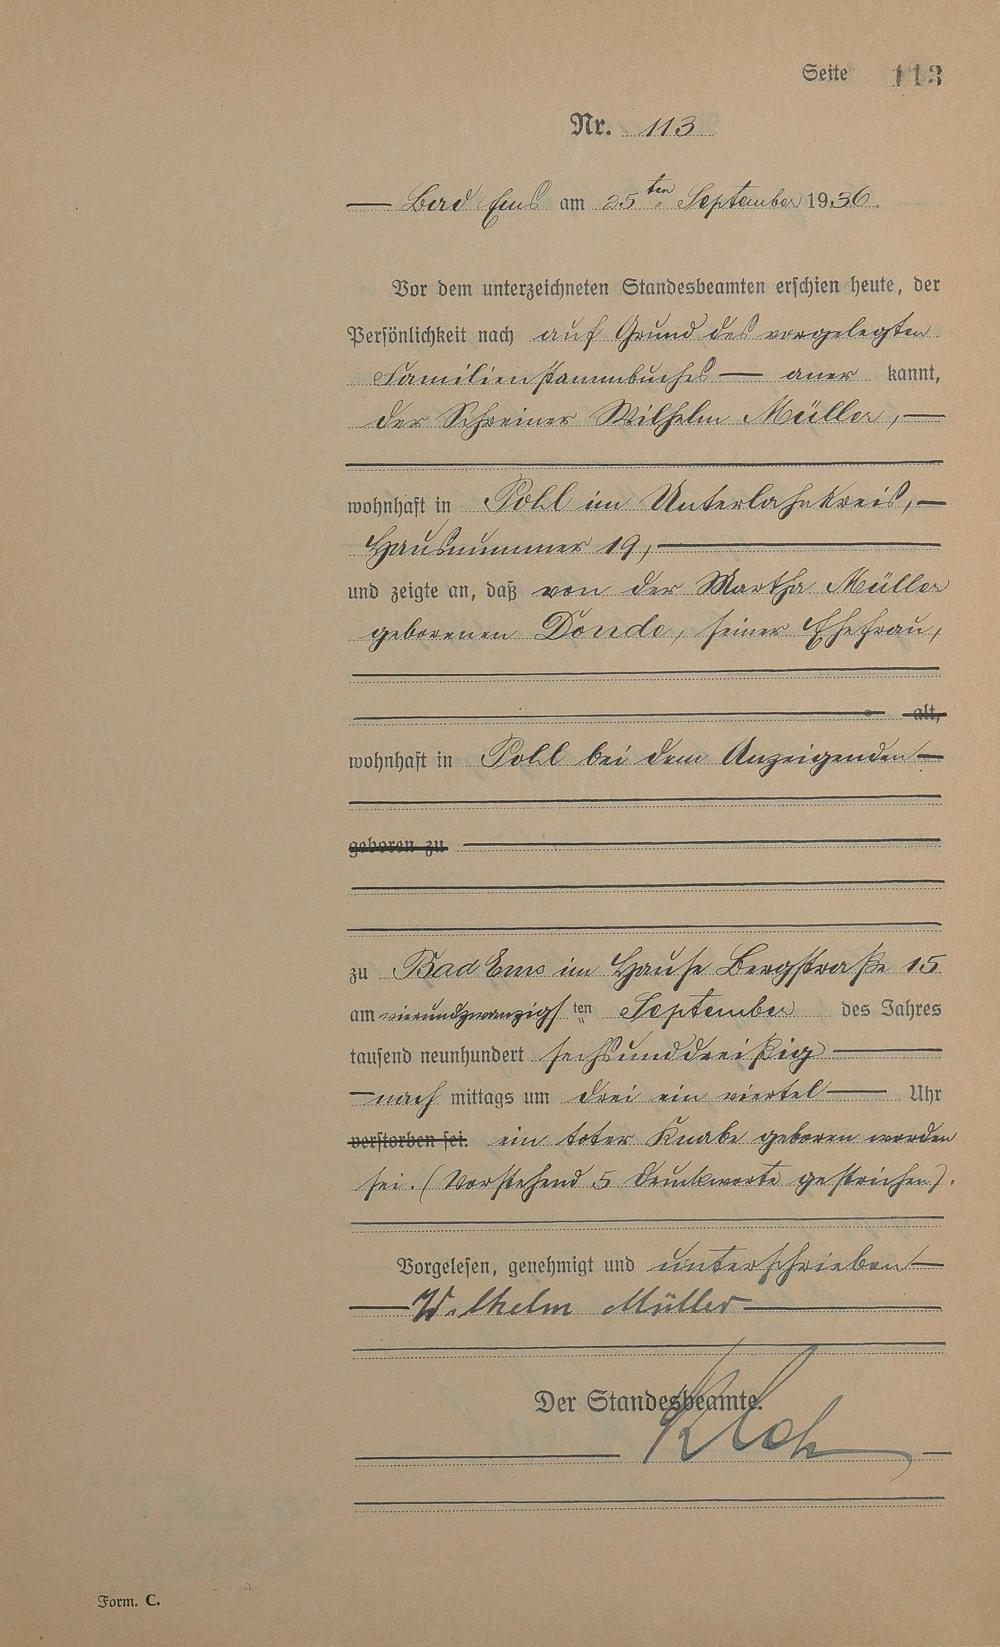 Seite 113
Nr. 113
Bad Ems am 25ten September 1936.
Vor dem unterzeichneten Standesbeamten erschien heute, der
Persönlichkeit nach auf Grund des vorgelegten
Familienstammbuches — aner kannt,
der Schreiner Wilhelm Müller, —
wohnhaft in Pohl im Unterlahnkreis, —
Hausnummer 19, —
und zeigte an, daß von der Martha Müller
geborenen Donde, seiner Ehefrau,
alt,
wohnhaft in Pohl bei dem Anzeigenden —
geboren zu
zu Bad Ems im Hause Bergstraße 15
am vierundzwanzigsten September des Jahres
tausend neunhundert sechsunddreißig —
— nach mittags um drei ein viertel — Uhr
verstorben sei. ein toter Knabe geboren worden
sei. (Vorstehend 5 Druckworte gestrichen).
Vorgelesen, genehmigt und unterschrieben —
— Wilhelm Müller —
Der Standesbeamte.
Form. C.